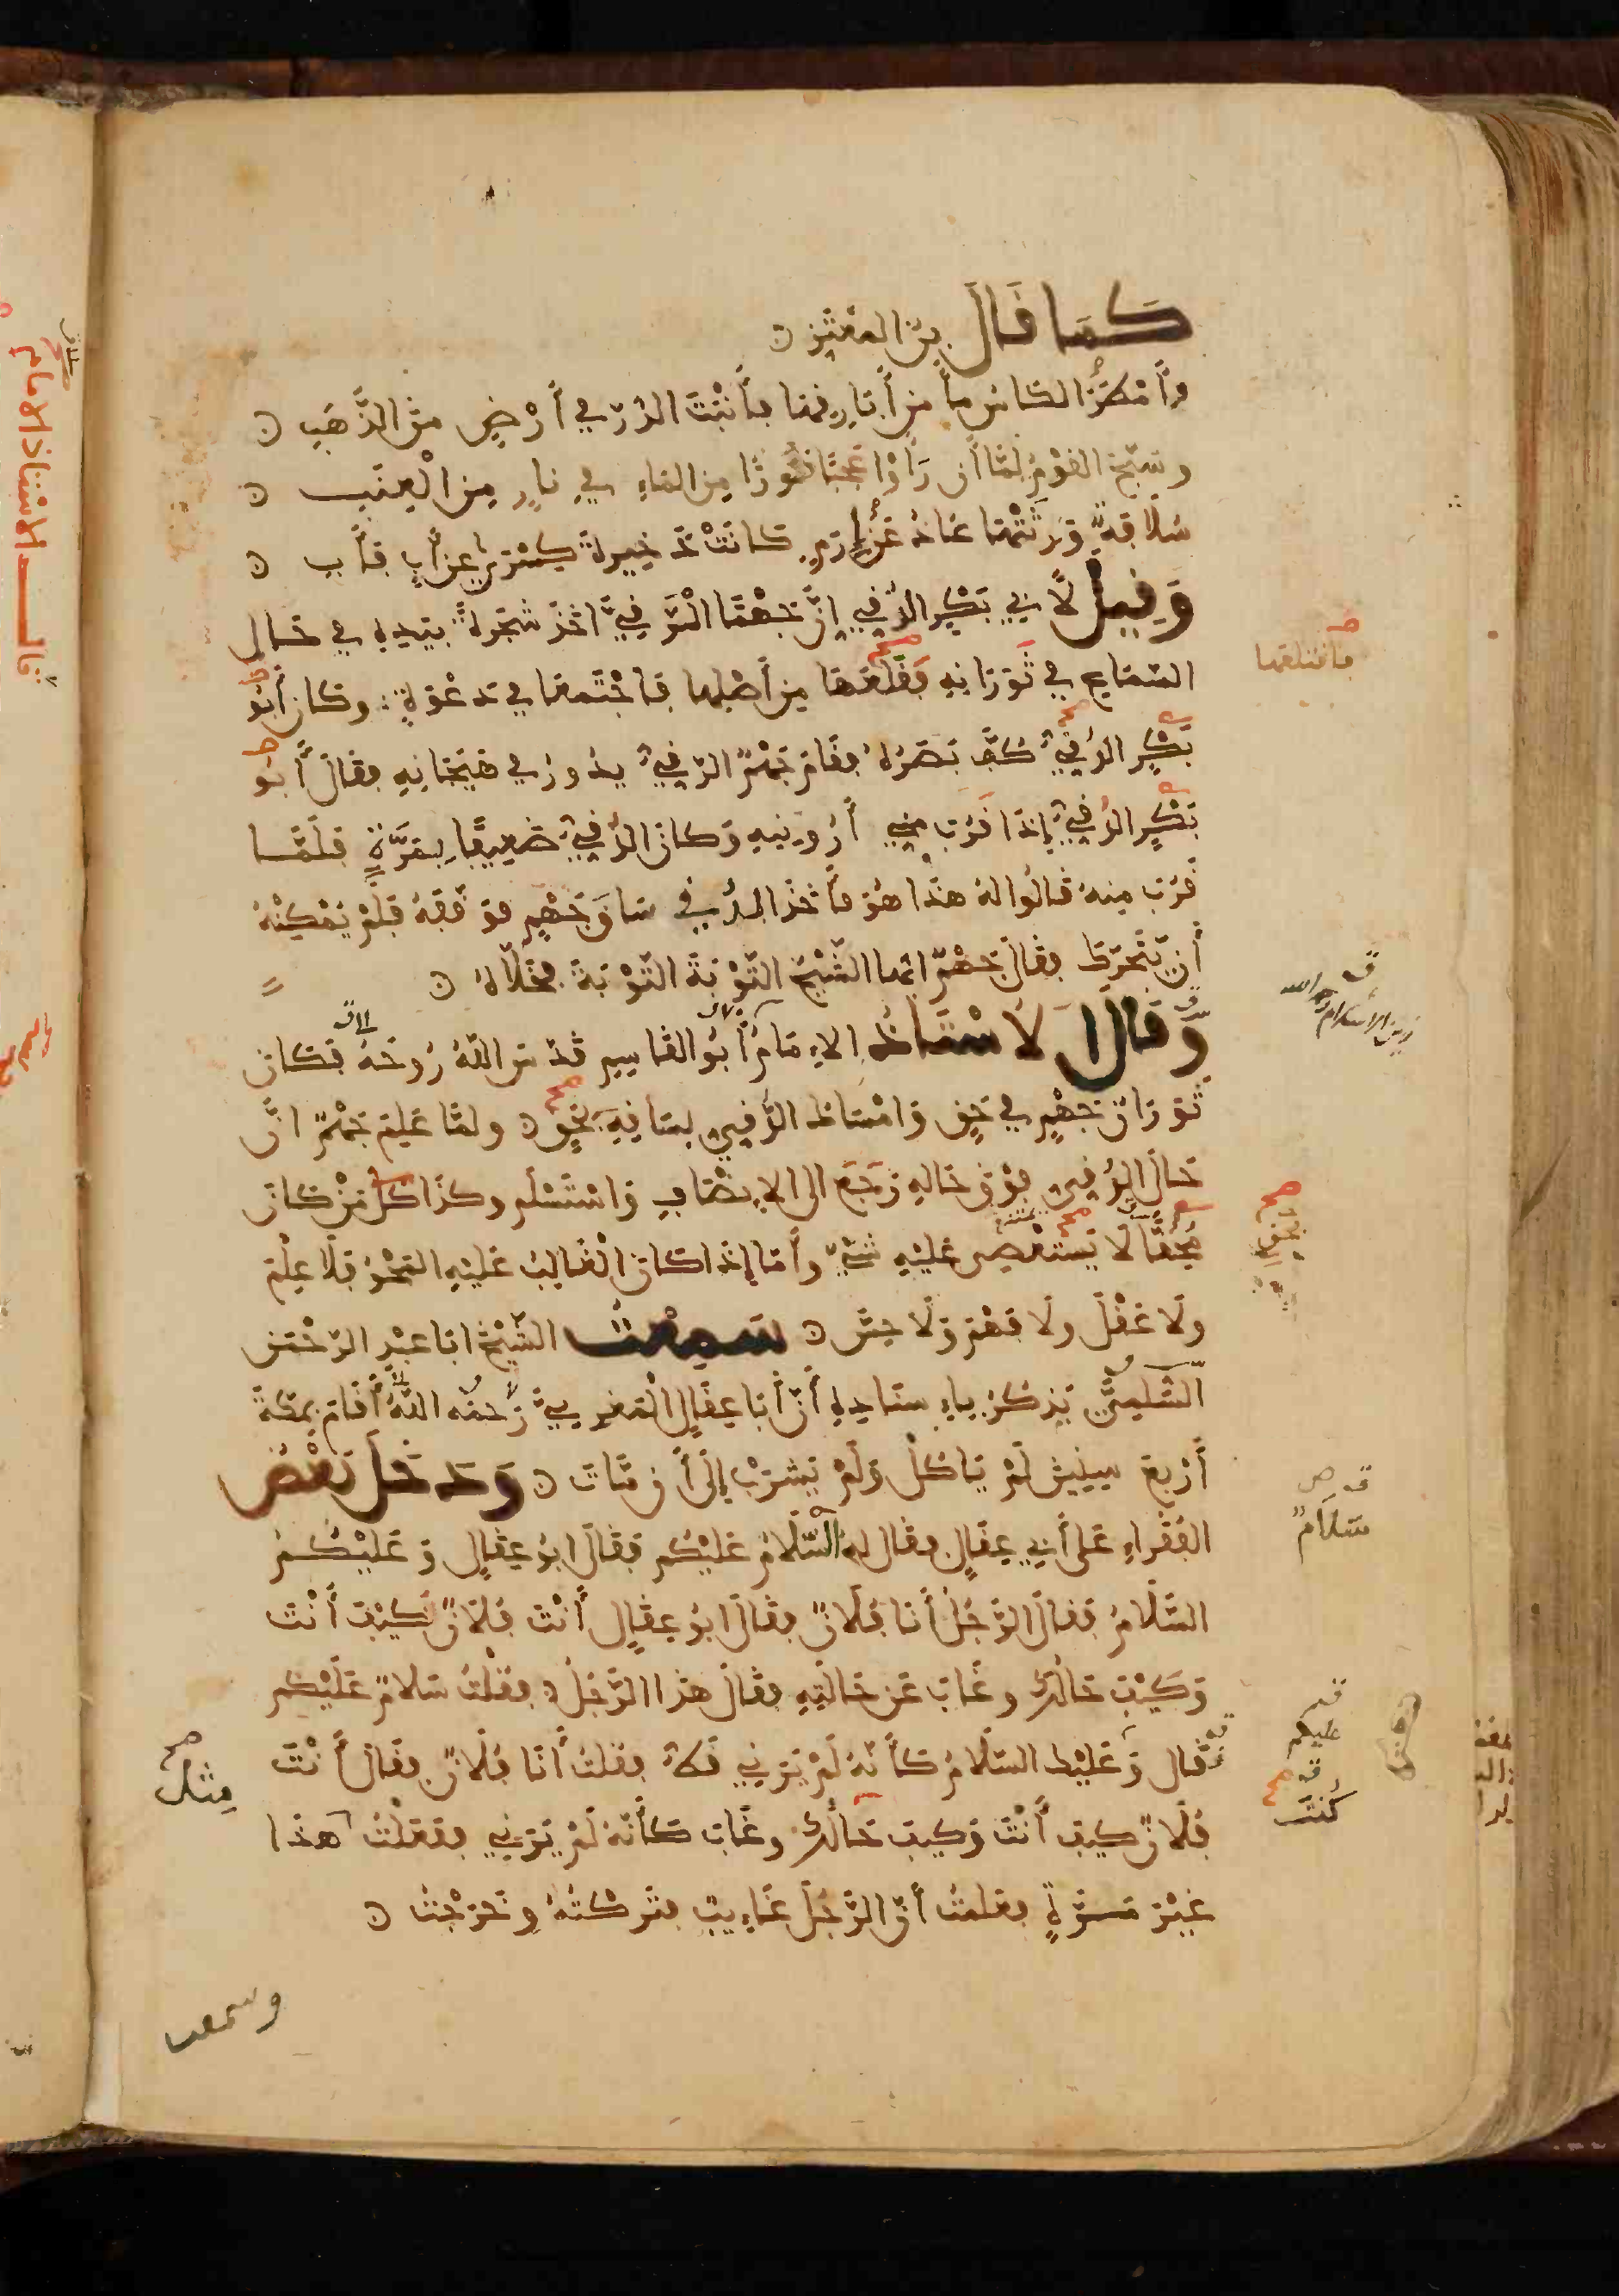 كَمَا قَالَ بن المعْتَزِّ
وَأَمْطَرَ الكَاس مآءً مِن أَبَارِيقها فأَنْبَتَ الدُّرّ في أَرْضٍ منَ الذَّهَبِ
وسَبَّحَ القَوْمُ لمَّا أَن رَأَوْا عَجَبًا نُورًا مِنَ المَاءِ في نارٍ مِنَ الْعِنَبِ
سُلافةً وَرِثَتْهَا عَادُ عَنْ إِرَمٍ كَانَتْ ذَخِيرةَ كِسْرَى عن أَبٍ فَأَبِ
وَقِيلَ لأَبي بَكْرٍ الدُّقي إِنَّ جَهْمًا الدُّقِيَّ اخَذَ شَجَرةً بِيَدِهِ في حَالِ
السَّمَاعِ في ثَوَرَانِهِ فَقَلَعَهَا مِن أَصْلِهَا فَاجْتَمَعَا في دَعْوَةٍ وكان أَبُو
بَكْرٍ الدُّقِيُّ كُفَّ بَصَرُهُ فقَامَ جَهْمٌ الدُّقِيُّ يدُورُ في هَيَجَانِهِ فقال أَبُو
بَكْرٍ الدُّقِيُّ إذَا قَرُبَ مِنِّي أَرُونِيهِ وَكان الدُّقِيُّ ضَعِيفًا بِمَرَّةٍ فَلَمَّا
قَرُبَ مِنهُ قَالُوا لهُ هذَا هُوَ فأَخَذَ الدُّقي سَاقَ جَهْمٍ فوَقَّفَهُ فَلَمْ يُمْكِنْهُ
أَن يَّتَحَرَّكَ فقالَ جَهْمٌ ايها الشَّيْخُ التَّوْبَةَ التَّوْبَةَ فخَلَّاهُ
وَقَالَ الاسْتَاذُ الامَامُ أَبُو القَاسِمِ قدَّسَ اللهُ رُوحَهُ فكَانَ
ثَوَرَانُ جَهْمٍ في حَقٍّ وَامْسَاكُ الدُّقِيِّ بسَاقِهِ بِحَقٍّ ولمَّا عَلِمَ جَهْمٌ انَّ
حَالَ الدُّقِيِّ فوْقَ حَالِهِ رَجَعَ الى الانْصَافِ وَاسْتَسْلَمَ وكَذَا كُلُّ مَنْ كَانَ
مُحِقًّا لا يَسْتَعْصِي عَلَيْهِ شَيْءٌ وأَمَّا إذَا كَانَ الْغَالِبُ عَلَيْهِ المَحْوُ فلَا عِلْمَ
ولَا عَقْلَ ولَا فَهْمَ وَلَا حِسَّ سَمِعْتُ الشَّيْخَ ابَا عَبْدِ الرَّحْمَن
السُّلَمِيَّ يَذْكُرُ بِاسْنَادِهِ أَنَّ أَبَا عِقَالٍ الْمَغْرِبِيَّ رَحِمَهُ اللهُ أَقَامَ بِمَكَّةَ
أَرْبَعَ سِنِينَ لَمْ يَاكُلْ وَلَمْ يَشْرَبْ إلَى أَن مَّاتَ وَدَخَلَ بَعْضُ
الفُقَرَاءِ عَلَى أَبي عِقَالٍ فقَالَ لهُ السَّلَامُ عَلَيْكُم فَقَالَ ابُو عِقَالٍ وَعَلَيْكُمُ
السَّلَامُ فَقَالَ الرَّجُلُ أَنَا فُلَانٌ فقَالَ ابُو عِقَالٍ أَنْتَ فُلَانٌ كَيْفَ أَنْتَ
وَكَيْفَ حَالُكَ وغَابَ عَن حَالَتِهِ فقالَ هذَا الرَّجُلُ فقُلْتُ سَلَامٌ عَلَيْكُم
فقَالَ وَعَلَيْكَ السَّلَامُ كَأَنَّهُ لَمْ يَرَنِي قَطُّ فقلتُ أَنَا فُلَانٌ فقَالَ أَنْتَ
فُلَانٌ كيفَ أَنْتَ وَكيفَ حَالُكَ وغَابَ كَأَنَّهُ لَمْ يَرَنِي ففَعَلْتُ هذَا
غَيْرَ مَرَّةٍ فعَلِمْتُ أَنَّ الرَّجُلَ غَايِبٌ فتَرَكْتُهُ وَخَرَجْتُ
فاقتلعها
زين الاسلام رحمه الله
بحق
سَلَامٌ
عليكم
كُنْتَ
مِثل
وسمعت